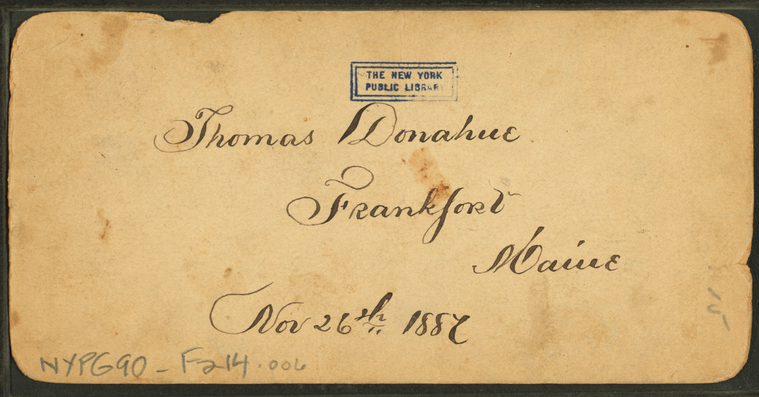 THE NEW YORK
PUBLIC LIBRARY
Thomas Donahue
Frankfort
Maine
Nov 26th 1887
NYPG90-F214.006